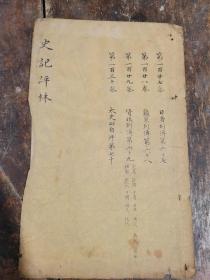 史記評林
第一百廿七卷 日者列傳第六十七
第一百廿八卷 龜策列傳第六十八
第一百廿九卷 貨殖列傳第六十九
第一百三十卷 太史公自序第七十